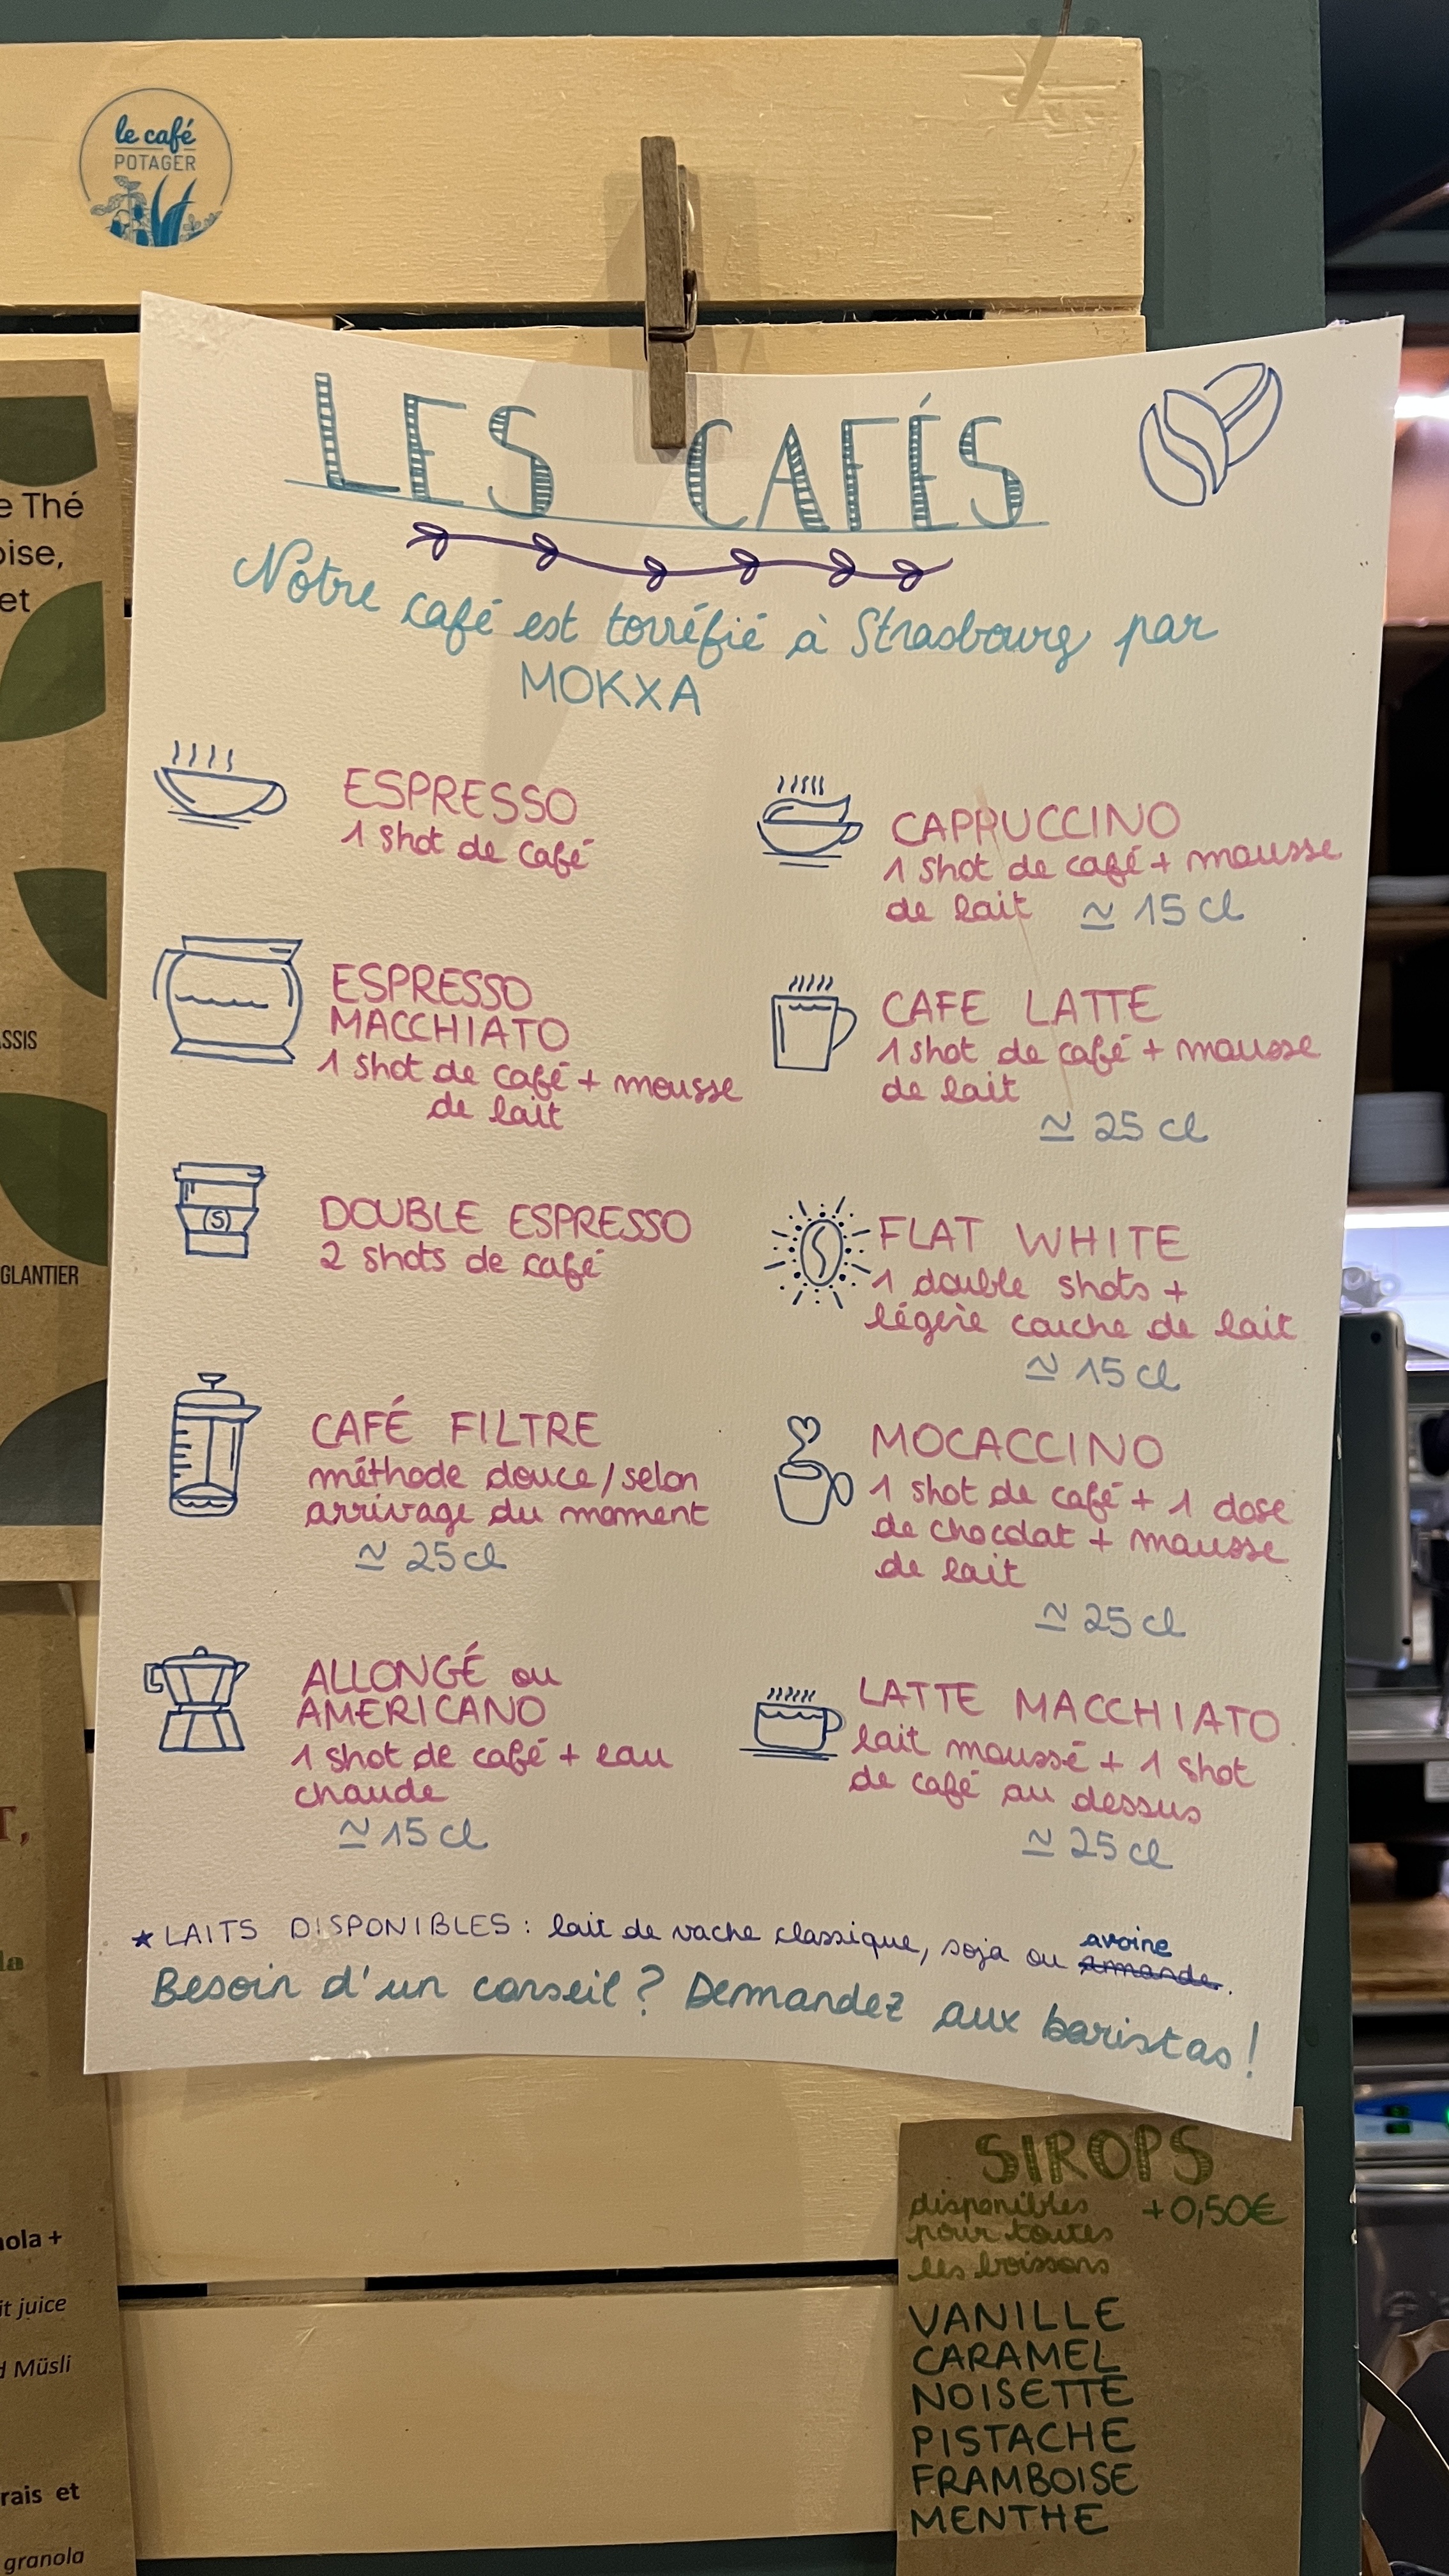 le café
POTAGER
LES CAFÉS
Notre café est torréfié à Strasbourg par
MOKXA
ESPRESSO
1 shot de café
ESPRESSO
MACCHIATO
1 shot de café + mousse
de lait
DOUBLE ESPRESSO
2 shots de café
CAFÉ FILTRE
méthode douce / selon
arrivage du moment
≃ 25 cl
ALLONGÉ ou
AMERICANO
1 shot de café + eau
chaude
≃ 15 cl
CAPPUCCINO
1 shot de café + mousse
de lait ≃ 15 cl
CAFE LATTE
1 shot de café + mousse
de lait
≃ 25 cl
FLAT WHITE
1 double shots +
légère couche de lait
≃ 15 cl
MOCACCINO
1 shot de café + 1 dose
de chocolat + mousse
de lait
≃ 25 cl
LATTE MACCHIATO
lait moussé + 1 shot
de café au dessus
≃ 25 cl
★ LAITS DISPONIBLES : lait de vache classique, soja ou avoine amande.
Besoin d'un conseil ? Demandez aux baristas !
SIROPS
disponibles +0,50€
pour toutes
les boissons
VANILLE
CARAMEL
NOISETTE
PISTACHE
FRAMBOISE
MENTHE
e Thé
oise,
et
ASSIS
GLANTIER
T,
la
nola +
it juice
d Müsli
rais et
granola